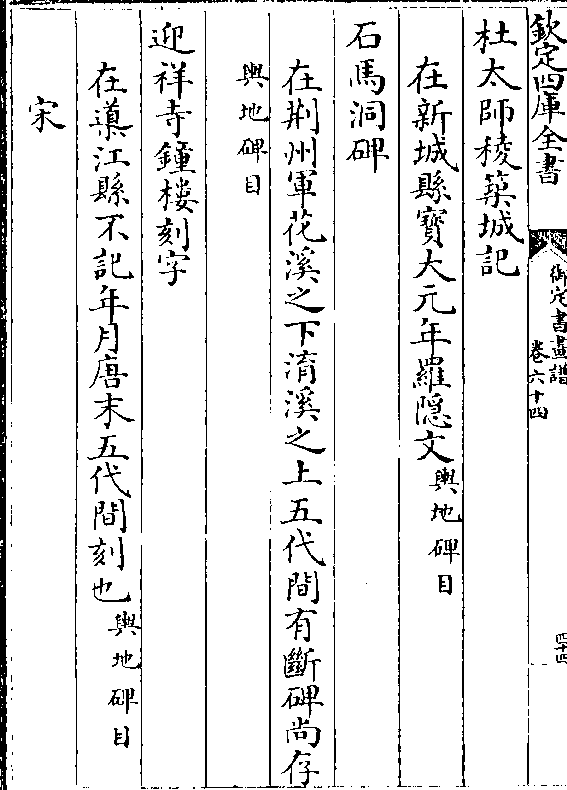 欽定四庫全書
御定書畫譜
卷六十四
四十四
杜太師稜築城記
在新城縣寶大元年羅隱文輿地碑目
石馬洞碑
在荆州軍花溪之下淯溪之上五代間有斷碑尚存
輿地碑目
迎祥寺鐘樓刻字
在導江縣不記年月唐末五代間刻也輿地碑目
宋